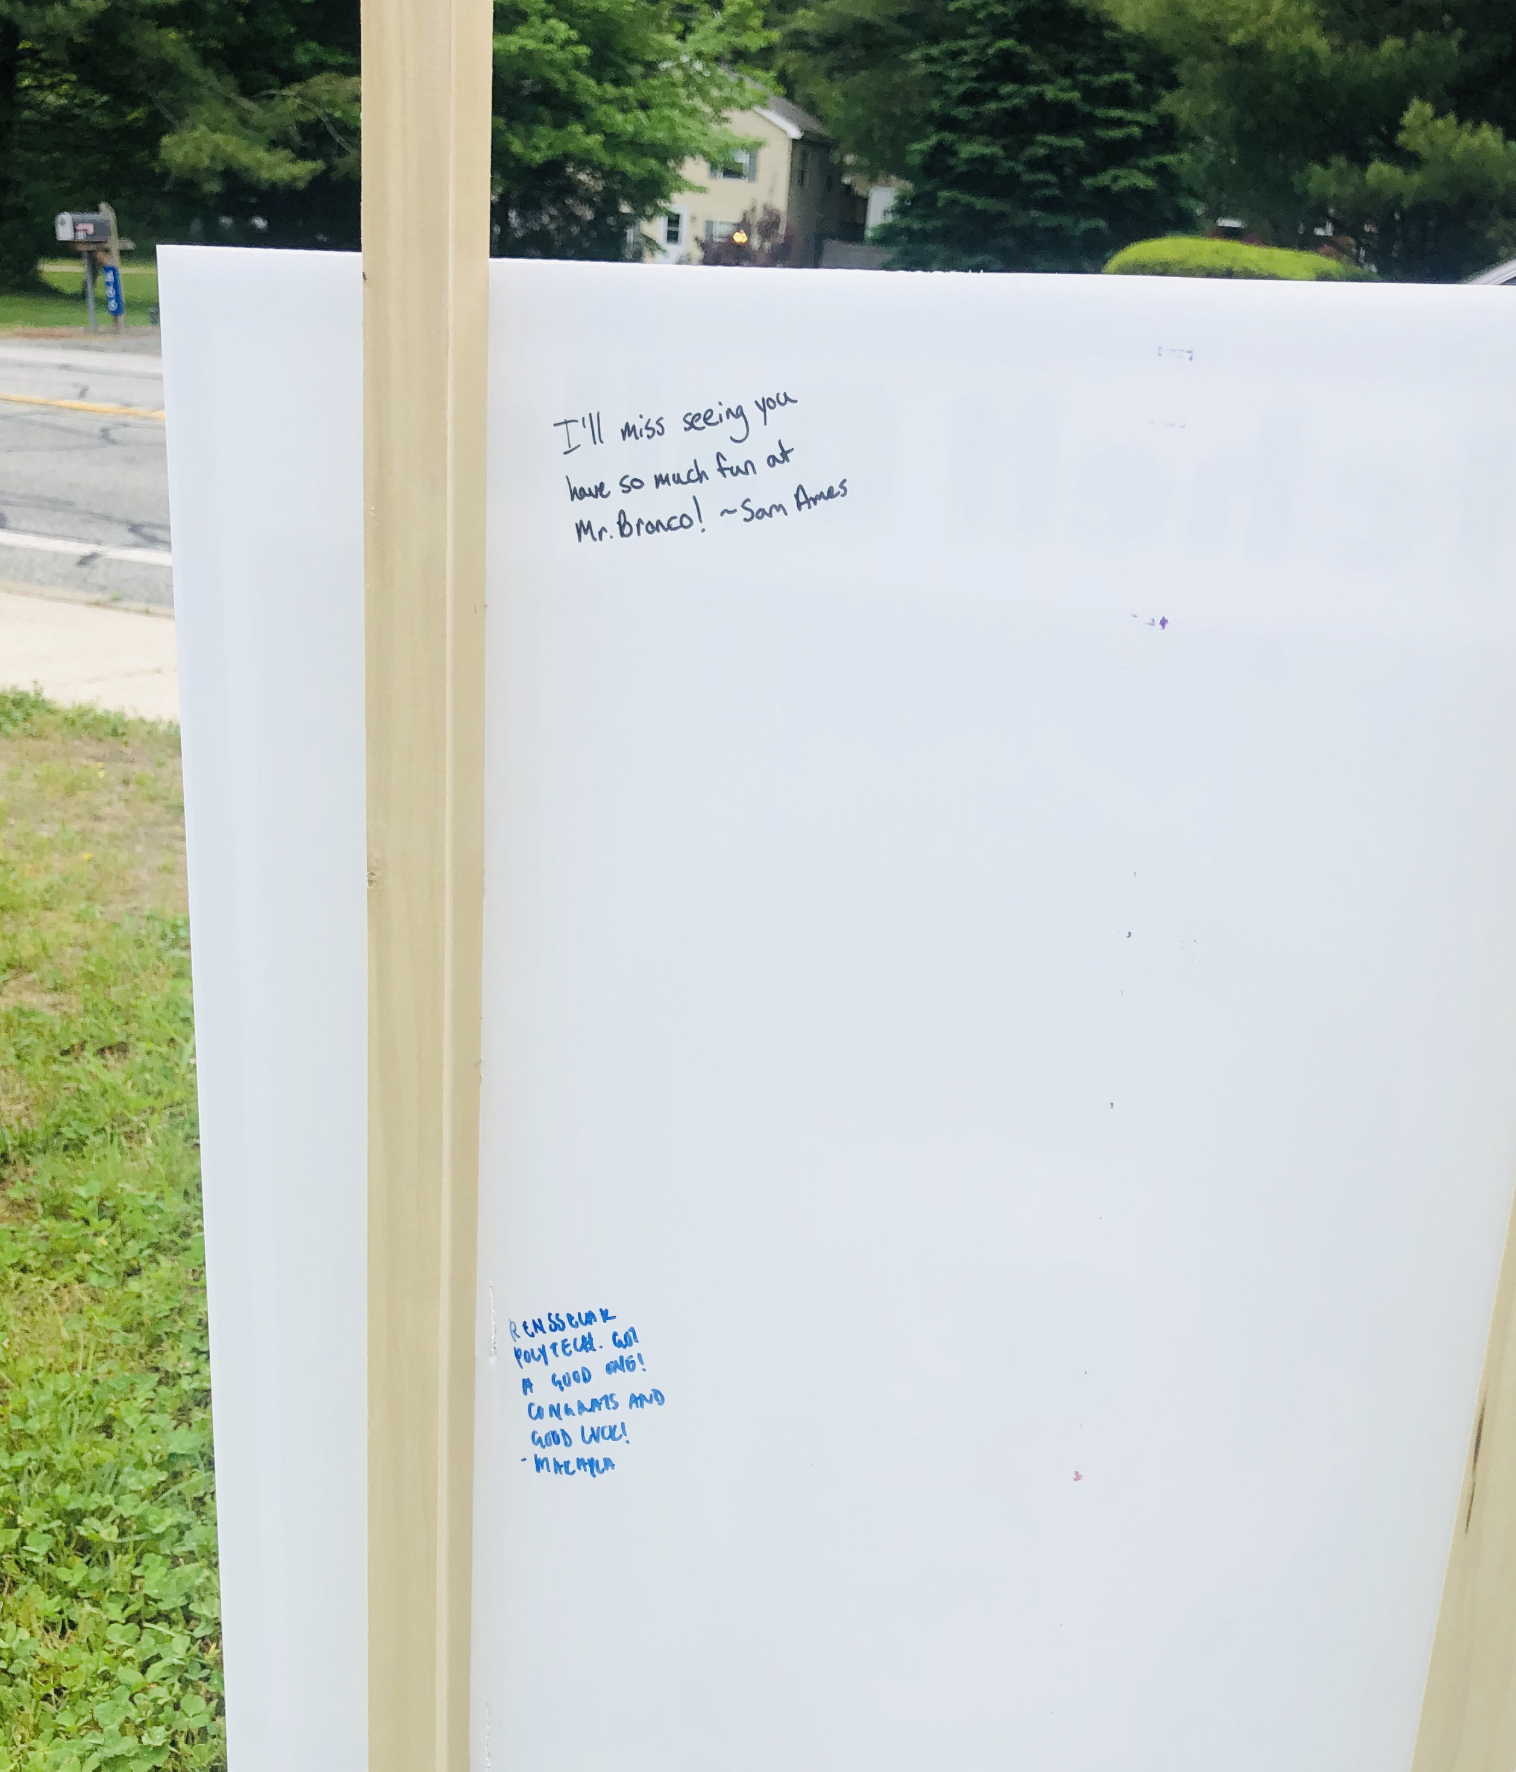 I'll miss seeing you
have so much fun at
Mr. Bronco! ~Sam Ames
RENSSELAR
POLYTECH. GOT
A GOOD ONE!
CONGRATS AND
GOOD LUCK!
- MAKAYLA